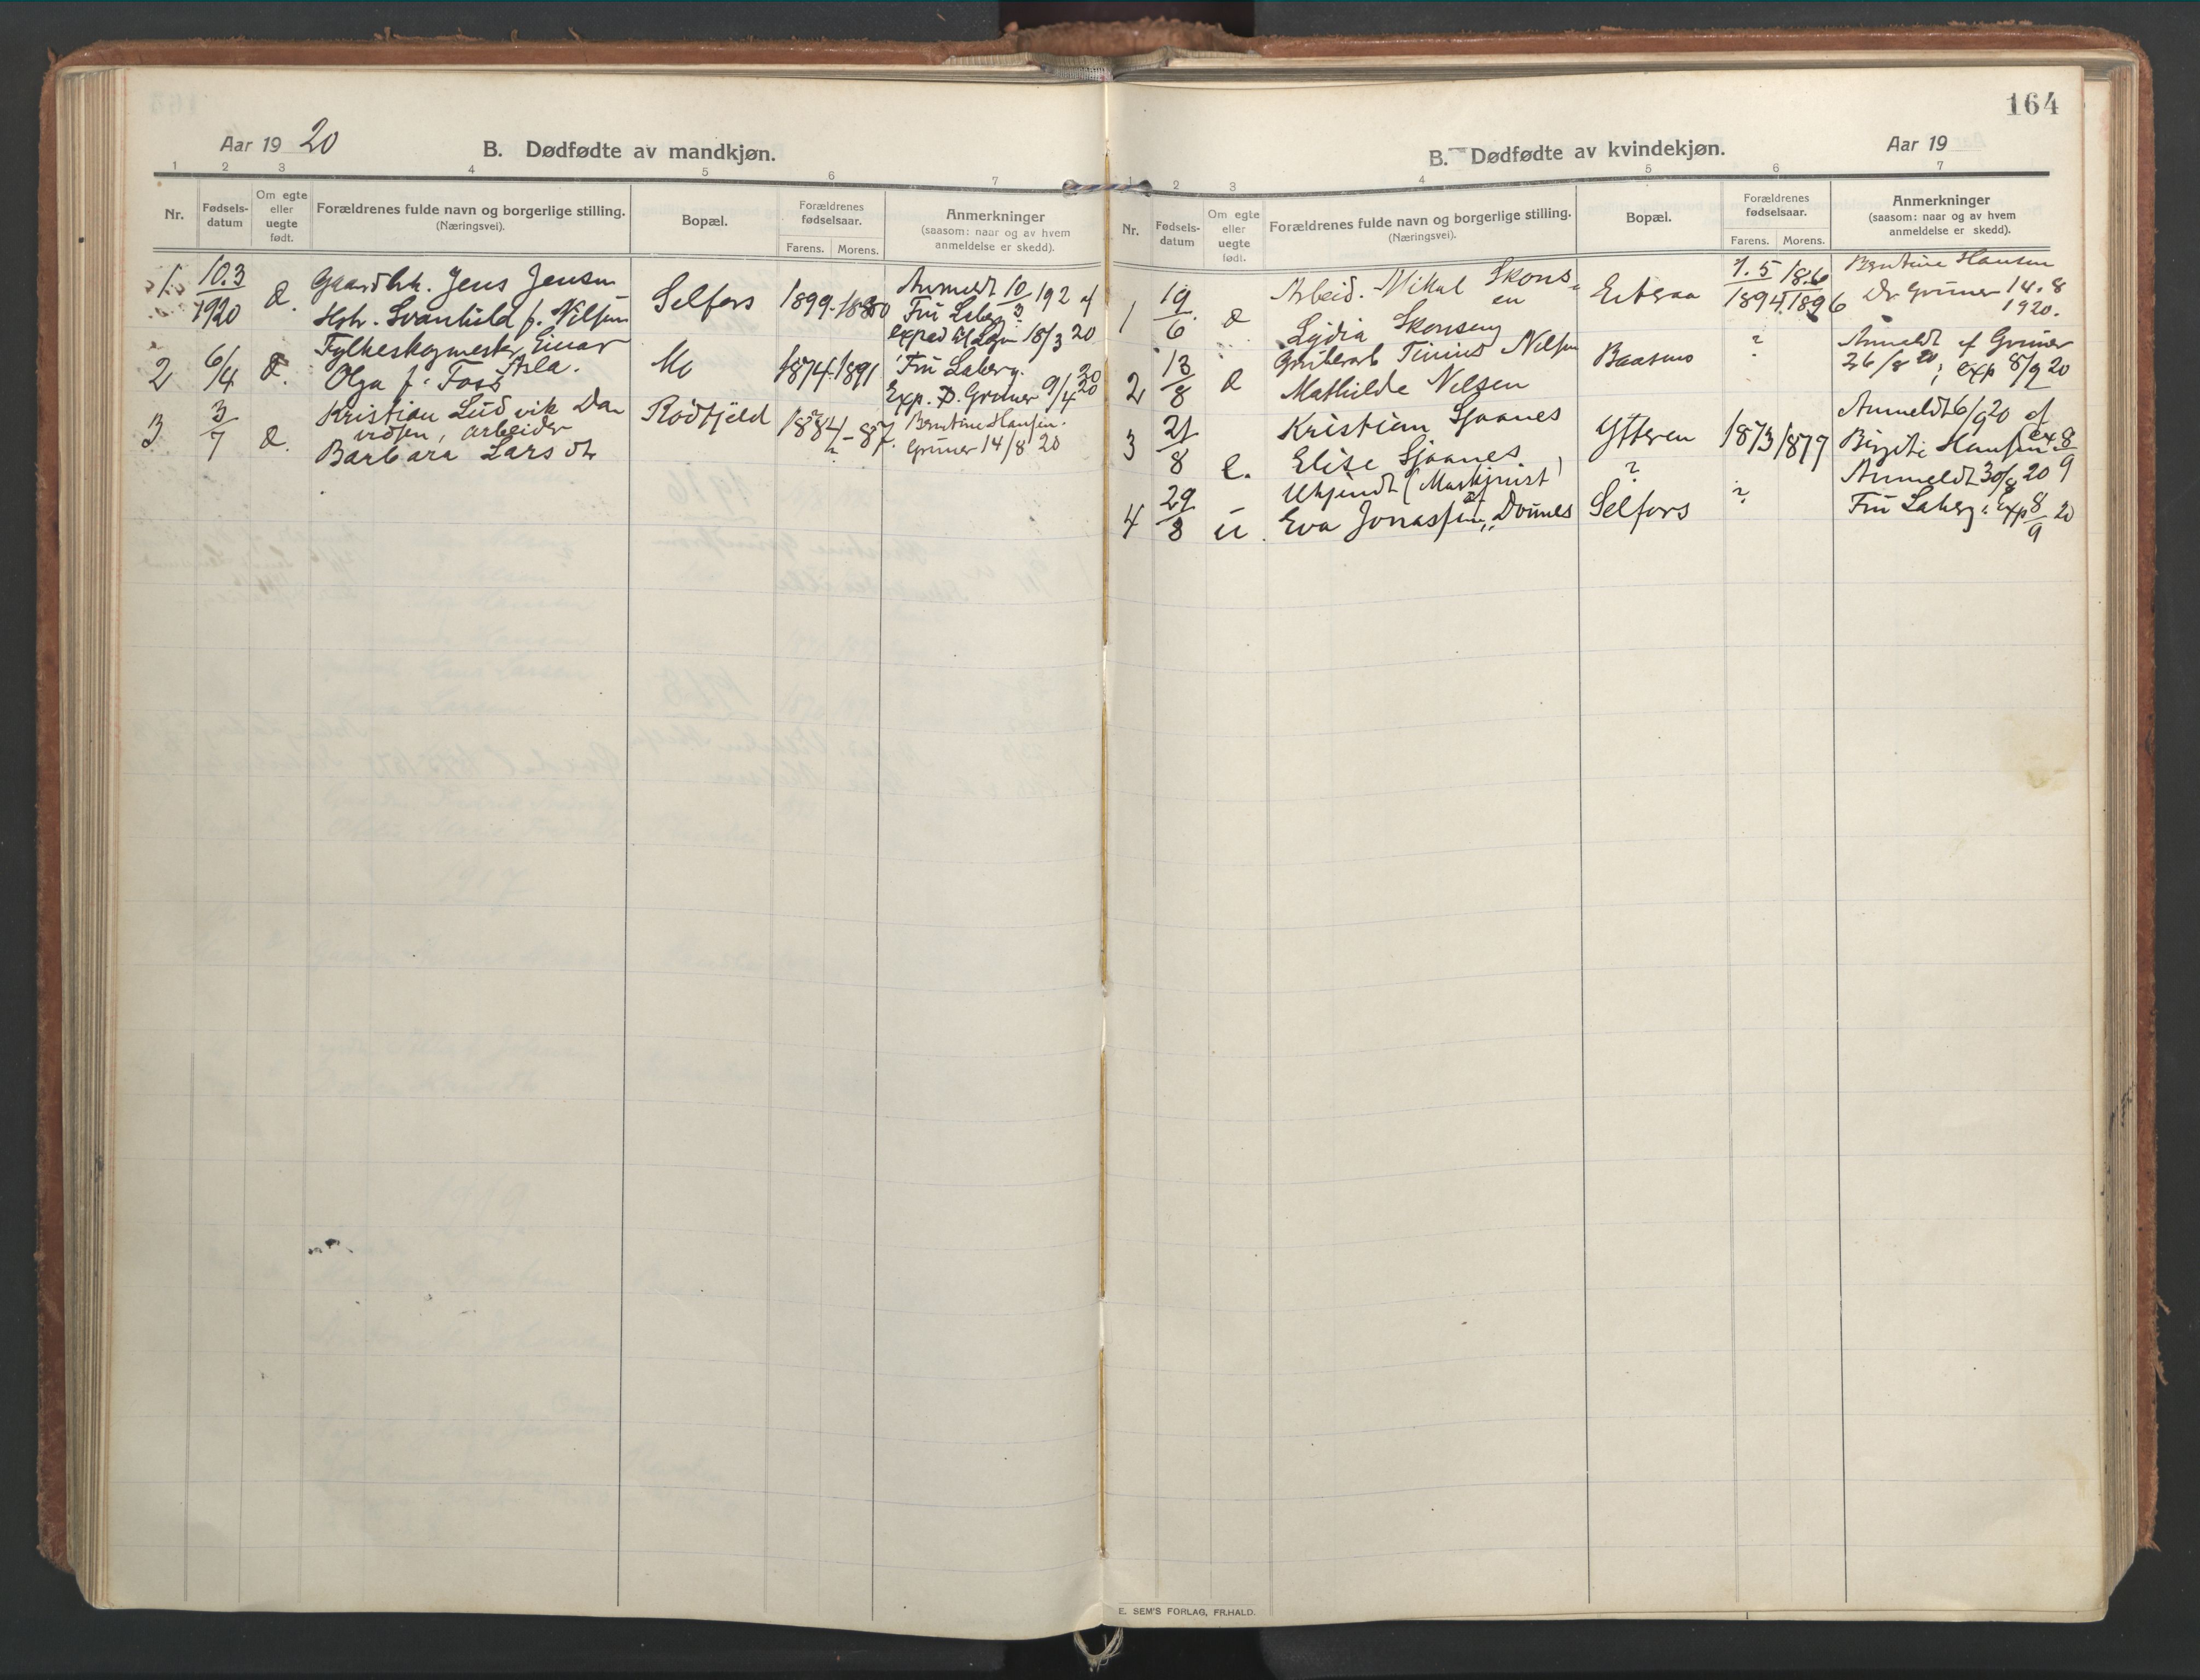 Aar 19 20
B. Dødfødte av mandkjøn.
1 2 3 4 5 6 7
Nr.
Fødsels-
datum
Om egte
eller
uegte
født.
Forældrenes fulde navn og borgerlige stilling.
(Næringsvei).
Bopæl.
Forældrenes
fødselsaar.
Farens. Morens.
Anmerkninger
(saasom: naar og av hvem
anmeldelse er skedd).
1. 10.3 1920 Jens Jensen
Svanhild f. Nilsen
Selfors 1899
Anmeldt 10/3 192 af
Fru Laberg
exped til 18/3 20
2 6/4 Fylkesskogmester Einar
Olga f. Foss
Mo 1874-1891
Fru Laberg. 20
Exp. D. Grüner 9/4 20
3 3/7 Kristian Ludvik Da
vidsen, arbeider
Barbara Larsdtr
Rødfjeld 1884-87
Bentine Hansen.
Grüner 14/8 20
164
Aar 19
B. Dødfødte av kvindekjøn.
1 2 3 4 5 6 7
Nr.
Fødsels-
datum
Om egte
eller
uegte
født.
Forældrenes fulde navn og borgerlige stilling.
(Næringsvei).
Bopæl.
Forældrenes
fødselsaar.
Farens. Morens.
Anmerkninger
(saasom: naar og av hvem
anmeldelse er skedd).
1 19/6 Arbeid. Mikal Skons-
en
Lydia Skonseng
7.5 18.6
1894 1896
Bentine Hansen
Dr. Grüner 14.8
1920.
2 13/8 Grubearb Tinius Nilsen
Mathilde Nilsen
Baasmo ?
Anmeldt af Grüner
26/8 20; exp 8/9 20
3 21/8 e. Kristian Sjaanes
Elise Sjaanes
Ytteren 1873 1879
Anmeldt 6/9 20 af
Birgite Hansen (ex 8/9
4 29/8 u. Ukjendt (
Eva Jonassen, Dønnes
? Selfors ?
Anmeldt 30/8 20
Fru Laberg; exp 8/9 20
E. SEM'S FORLAG, FR.HALD.